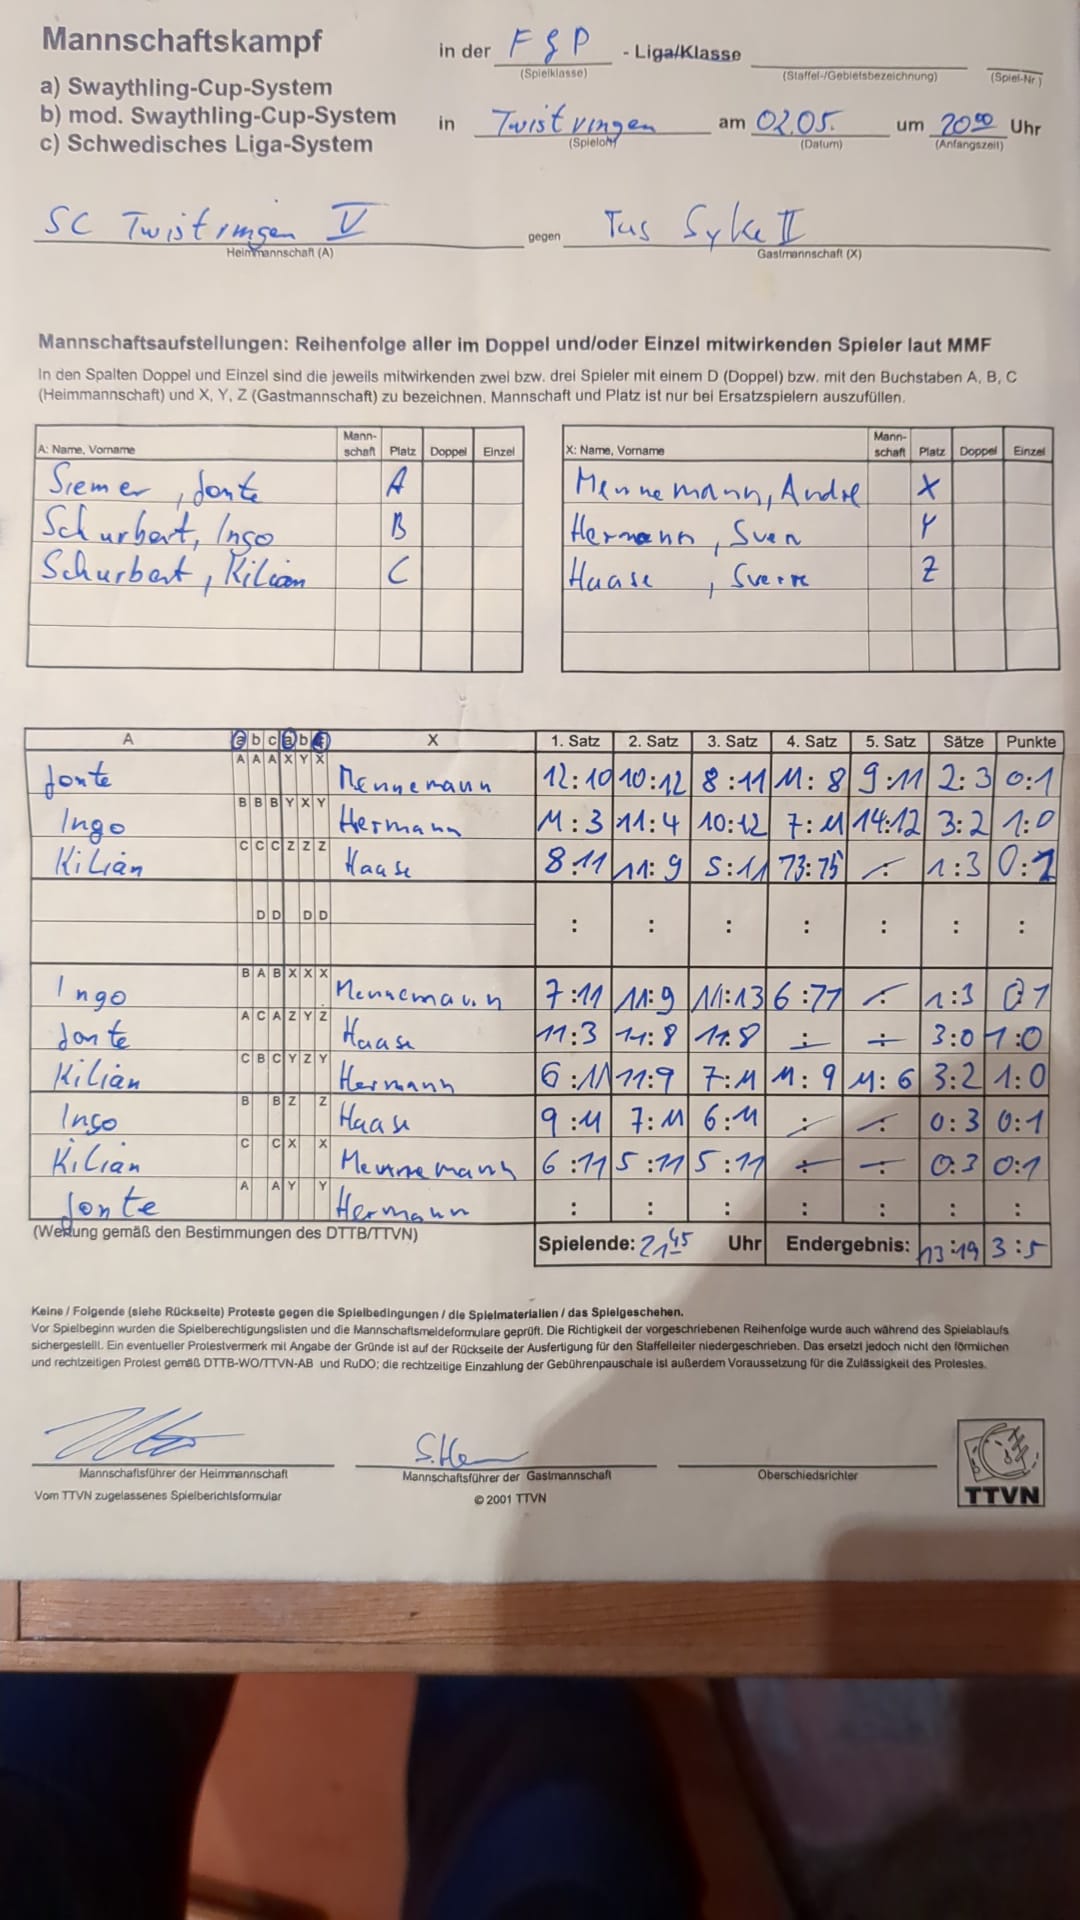 Mannschaftskampf
in der FSP - Liga/Klasse
(Spielklasse) (Staffel-/Gebietsbezeichnung) (Spiel-Nr.)
a) Swaythling-Cup-System
b) mod. Swaythling-Cup-System
c) Schwedisches Liga-System
in Twistringen am 02.05. um 20 00 Uhr
(Spielort) (Datum) (Anfangszeit)
SC Twistringen V gegen Tus Syke II
Heimmannschaft (A) Gastmannschaft (X)
Mannschaftsaufstellungen: Reihenfolge aller im Doppel und/oder Einzel mitwirkenden Spieler laut MMF
In den Spalten Doppel und Einzel sind die jeweils mitwirkenden zwei bzw. drei Spieler mit einem D (Doppel) bzw. mit den Buchstaben A, B, C
(Heimmannschaft) und X, Y, Z (Gastmannschaft) zu bezeichnen. Mannschaft und Platz ist nur bei Ersatzspielern auszufüllen.
A: Name, Vorname Mann-schaft Platz Doppel Einzel
Siemer, Jonte A
Schurbert, Ingo B
Schurbert, Kilian C
X: Name, Vorname Mann-schaft Platz Doppel Einzel
Mennemann, André X
Hermann, Sven Y
Haase, Sverre Z
A a b c a b c X 1. Satz 2. Satz 3. Satz 4. Satz 5. Satz Sätze Punkte
Jonte A A A X Y X Mennemann 12:10 10:12 8:11 11:8 9:11 2:3 0:1
Ingo B B B Y X Y Hermann 11:3 11:4 10:12 7:11 14:12 3:2 1:0
Kilian C C C Z Z Z Haase 8:11 11:9 5:11 13:15 ÷ 1:3 0:1
D D D D : : : : : : :
Ingo B A B X X X Mennemann 7:11 11:9 11:13 6:11 ÷ 1:3 0 1
Jonte A C A Z Y Z Haase 11:3 11:8 11:8 ÷ ÷ 3:0 1:0
Kilian C B C Y Z Y Hermann 6:11 11:9 7:11 11:9 11:6 3:2 1:0
Ingo B B Z Z Haase 9:11 7:11 6:11 ÷ ÷ 0:3 0:1
Kilian C C X X Mennemann 6:11 5:11 5:11 ÷ ÷ 0:3 0:1
Jonte A A Y Y Hermann : : : : : : :
(Wertung gemäß den Bestimmungen des DTTB/TTVN)
Spielende: 21 45 Uhr Endergebnis: 13:19 3:5
Keine / Folgende (siehe Rückseite) Proteste gegen die Spielbedingungen / die Spielmaterialien / das Spielgeschehen.
Vor Spielbeginn wurden die Spielberechtigungslisten und die Mannschaftsmeldeformulare geprüft. Die Richtigkeit der vorgeschriebenen Reihenfolge wurde auch während des Spielablaufs
sichergestellt. Ein eventueller Protestvermerk mit Angabe der Gründe ist auf der Rückseite der Ausfertigung für den Staffelleiter niedergeschrieben. Das ersetzt jedoch nicht den förmlichen
und rechtzeitigen Protest gemäß DTTB-WO/TTVN-AB und RuDO; die rechtzeitige Einzahlung der Gebührenpauschale ist außerdem Voraussetzung für die Zulässigkeit des Protestes.
Mannschaftsführer der Heimmannschaft
Mannschaftsführer der Gastmannschaft
Oberschiedsrichter
Vom TTVN zugelassenes Spielberichtsformular
© 2001 TTVN
TTVN